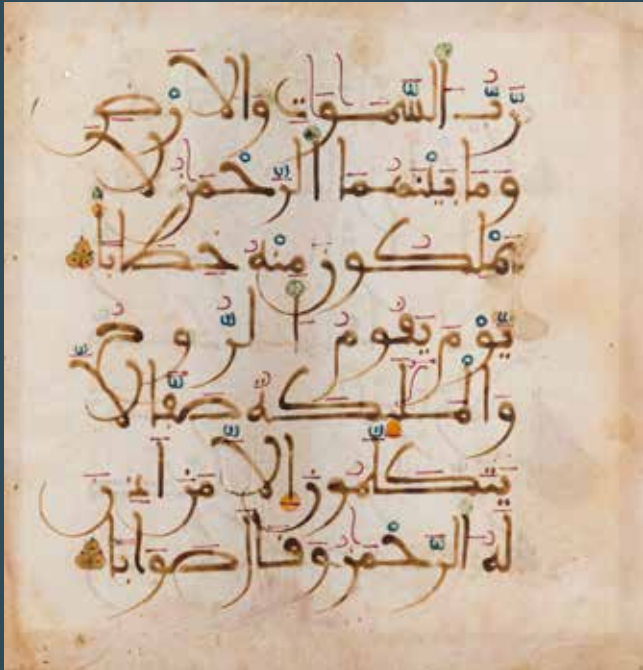 رَّبِّ السَّمَٰوَٰتِ وَالْأَرْضِ
وَمَا بَيْنَهُمَا الرَّحْمَٰنُ لَا
يَمْلِكُونَ مِنْهُ خِطَابًا
يَوْمَ يَقُومُ الرُّوحُ
وَالْمَلَٰئِكَةُ صَفًّا لَّا
يَتَكَلَّمُونَ إِلَّا مَنْ أَذِنَ
لَهُ الرَّحْمَٰنُ وَقَالَ صَوَابًا